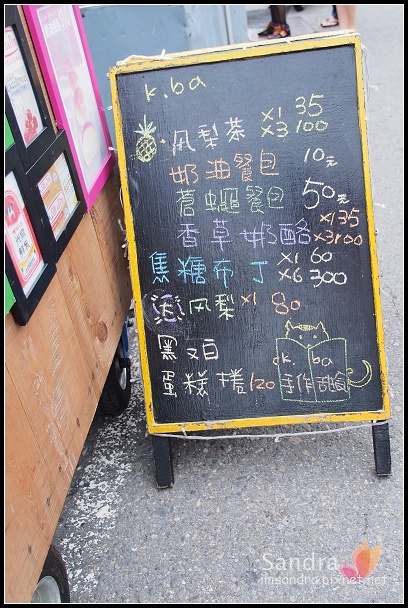 k.ba.
凤梨茶 x1 35
x3 100
奶油餐包 10元
蒼蠅餐包 50元
香草奶酪 x1 35
x3 100
焦糖布丁 x1 60
x6 300
凤梨 x1 80
黑 白
蛋糕捲 120
k. ba
手作甜食
Sandra
imsandra.pixnet.net